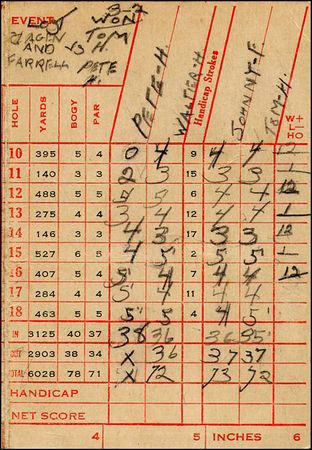 EVENT 3-2
WON
HAGEN VS TOM
AND H.
FARRELL PETE
H.
PETE-H. WALTER-H Handicap Strokes JOHNNY-F TOM-H.
HOLE YARDS BOGY PAR W+ L- HO
10 395 5 4 0 4 9 4 4 12
11 140 3 3 2 3 15 3 3 1
12 488 5 5 5 5 6 4 4 12
13 275 4 4 3 4 12 4 4 1
14 146 3 3 4 3 17 3 3
15 527 6 5 4 5 2 5 5 1
16 407 5 4 5 4 7 4 4 12
17 284 4 4 5 4 11 4 4
18 463 5 5 5 5 4 4 5
IN 3125 40 37 38 36 36 35
OUT 2903 38 34 X 36 37 37
TOTAL 6028 78 71 X 72 73 72
HANDICAP
NET SCORE
4 5 INCHES 6